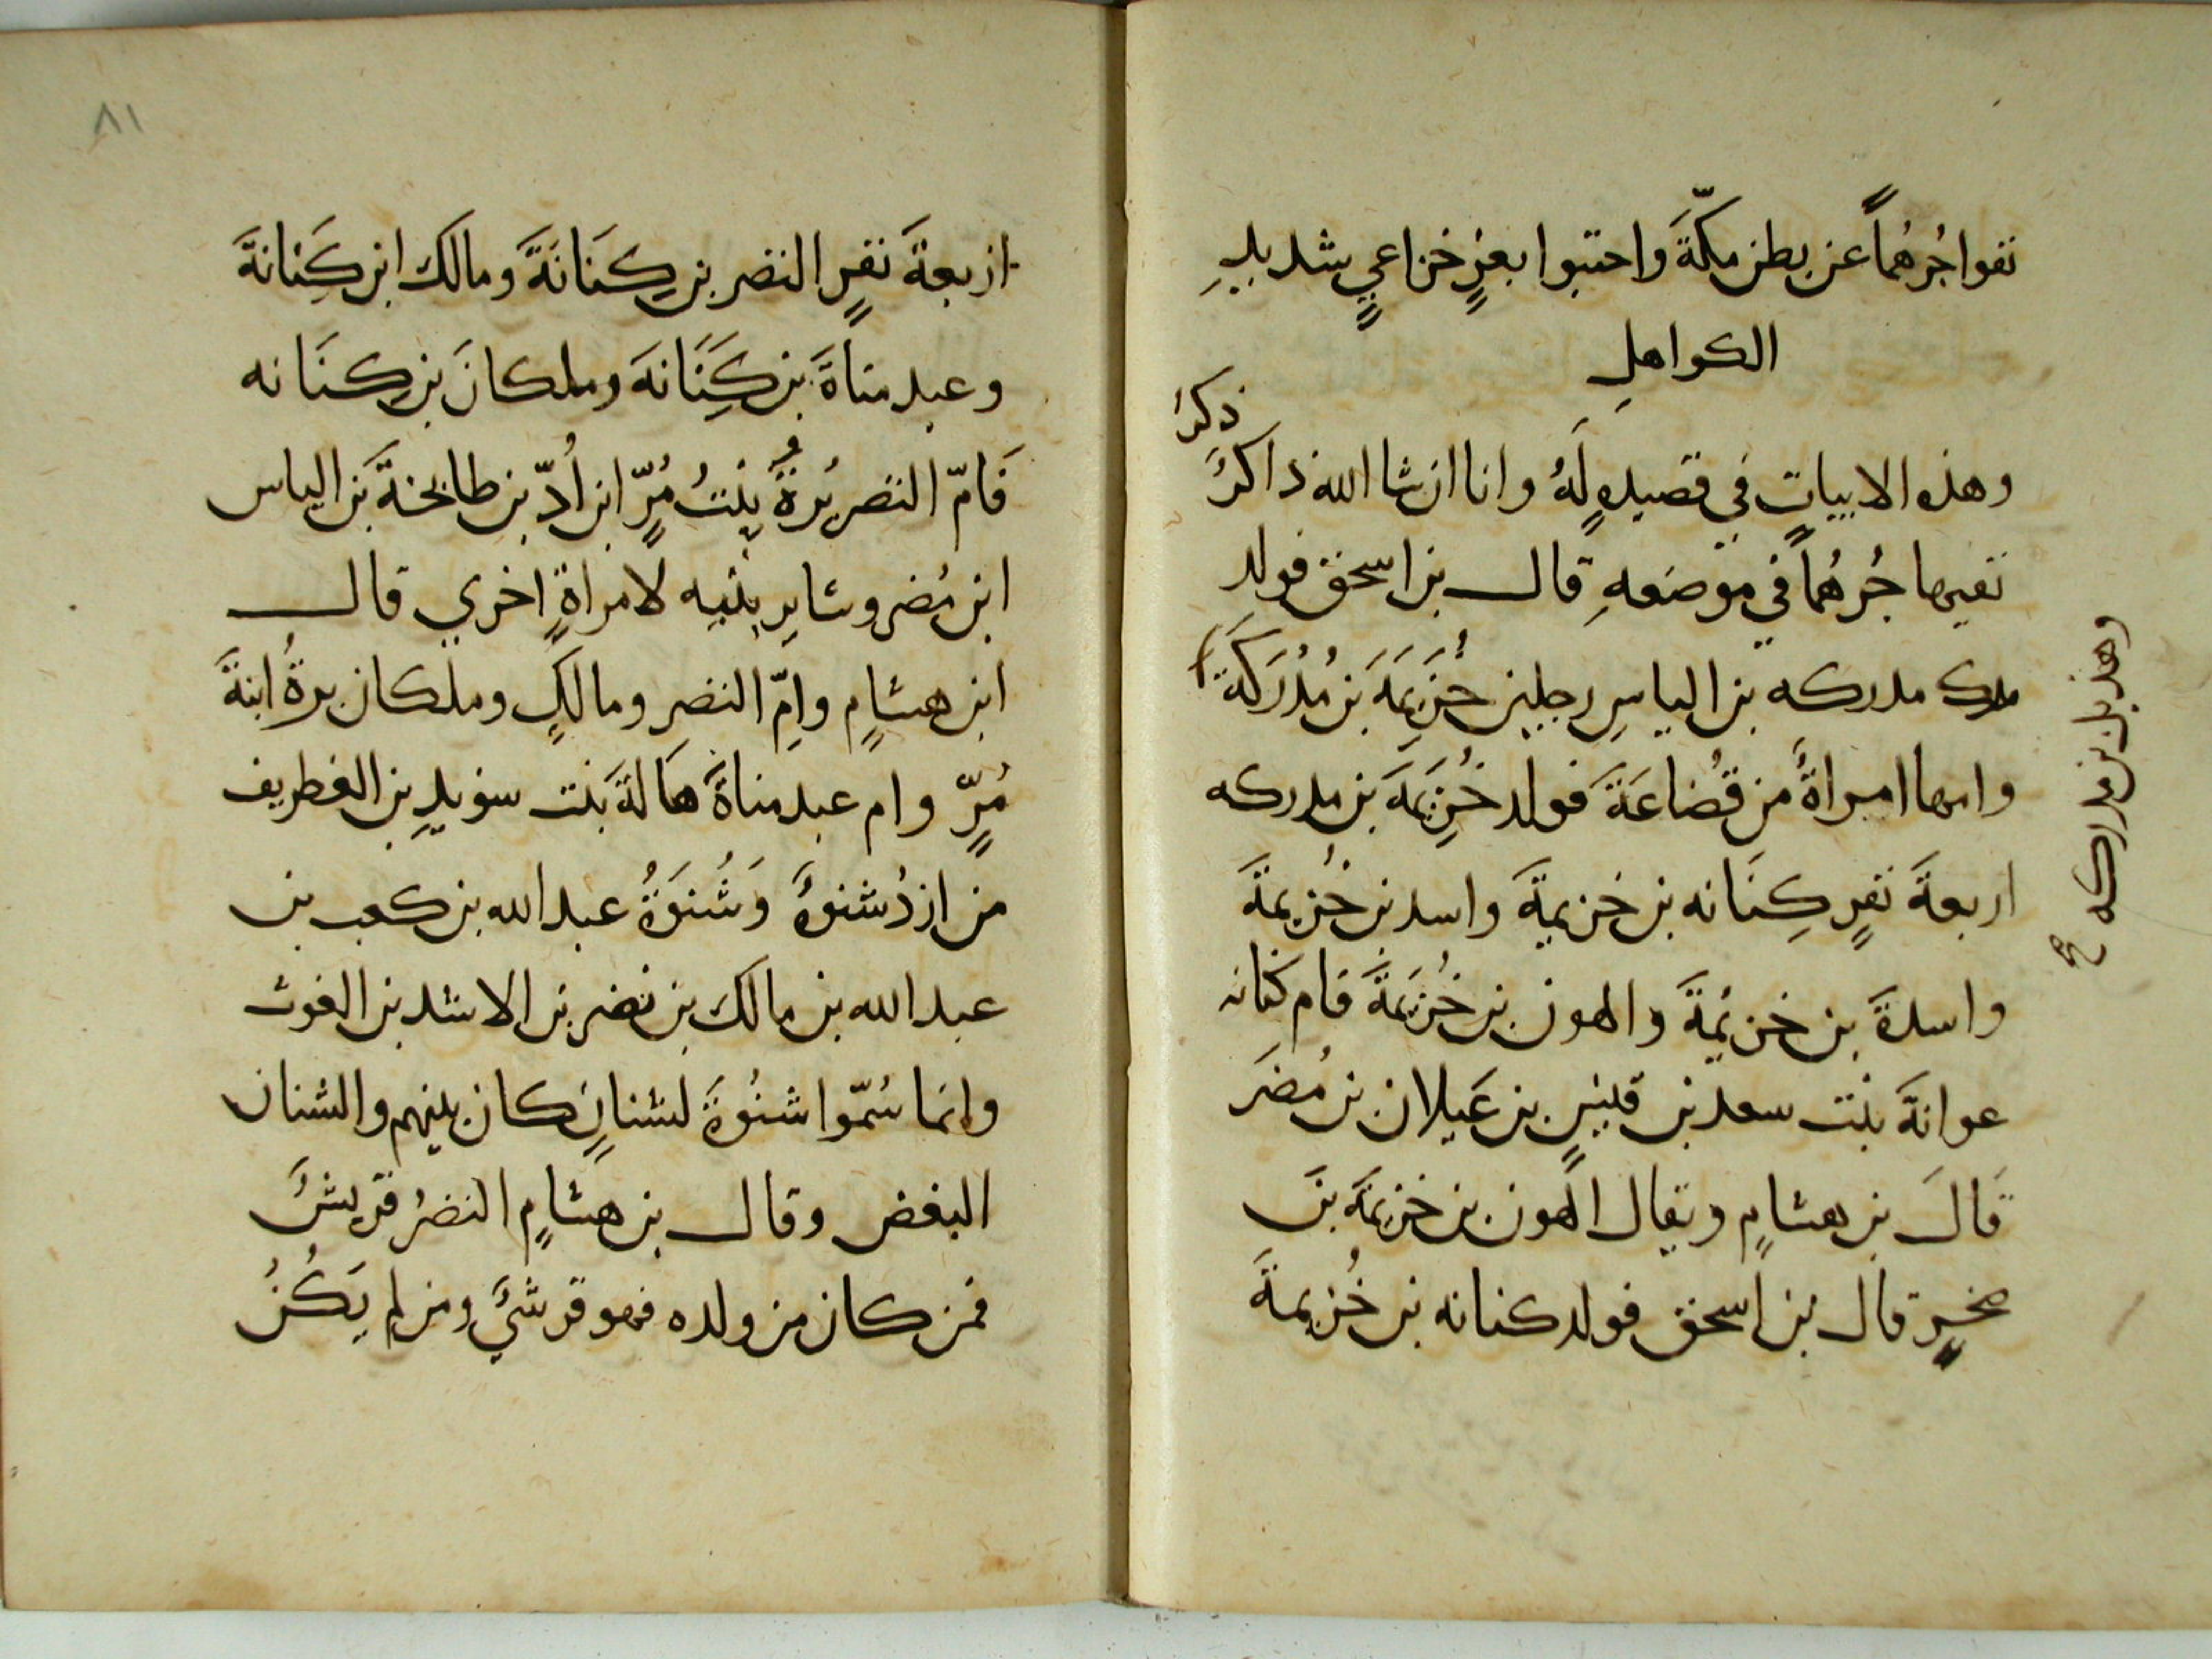 نفوا جُرهُماً عن بطن مكّةَ واحتبوا بعزٍ خزاعيٍ شديدِ
الكواهلِ
وهذه الابيات في قصيدهٍ لَهُ وانا ان شا الله ذاكرٌ
ذكر
نفيها جُرهُماً في موضعهِ قال بن اسحق فولد
مدركه بن الياسِ رجلين خُزَيمَةَ بن مُدْرَكَة
وهذيل بن مدركه صح
وامها امراةٌ من قُضاعَةَ فولد خُزيمَةَ بن مدركه
اربعةَ نفرٍ كِنَانه بن خزيمةَ واسد بن خُزيمةَ
واسدةَ بن خزيمةَ والهون بن خُزيمَةَ فام كنانه
عوانةَ بنت سعد بن قيسٍ بن عَيلان بن مُضَرَ
قَالَ بن هشامٍ ويقال الهون بن خزيمةَ بن
قال بن اسحق فولد كنانه بن خُزيمةَ
٨١
اربعةَ نفرٍ النضر بن كِنَانَةَ ومالك ابن كِنانةَ
وعبد مناةَ بن كِنَانةَ وملكانَ بن كِنَانه
فَامّ النضر بُرةُ بِنتُ مُرٍّ ابن اُدّ بن طابخةَ بن الياس
ابن مُضر وسايِر بنيه لامراةٍ اخري قال
ابن هشامٍ وامّ النضرِ ومالكٍ وملكان برةُ ابنةَ
مُرٍّ وام عبد مناةَ هَالةَ بنت سويدِ بن الغطريف
من ازدُ شنوةَ وَشُنوَةُ عبد الله بن كعب بن
عبد الله بن مالك بن نضر بن الاسد بن الغوث
وانما سُمّوا شنُوةَ لشنانٍ كان بينهم والشنان
البغض وقال بن هشامٍ النضرُ قريشٌ
فمن كان من ولده فهو قرشيٌ ومن لم يَكُنْ